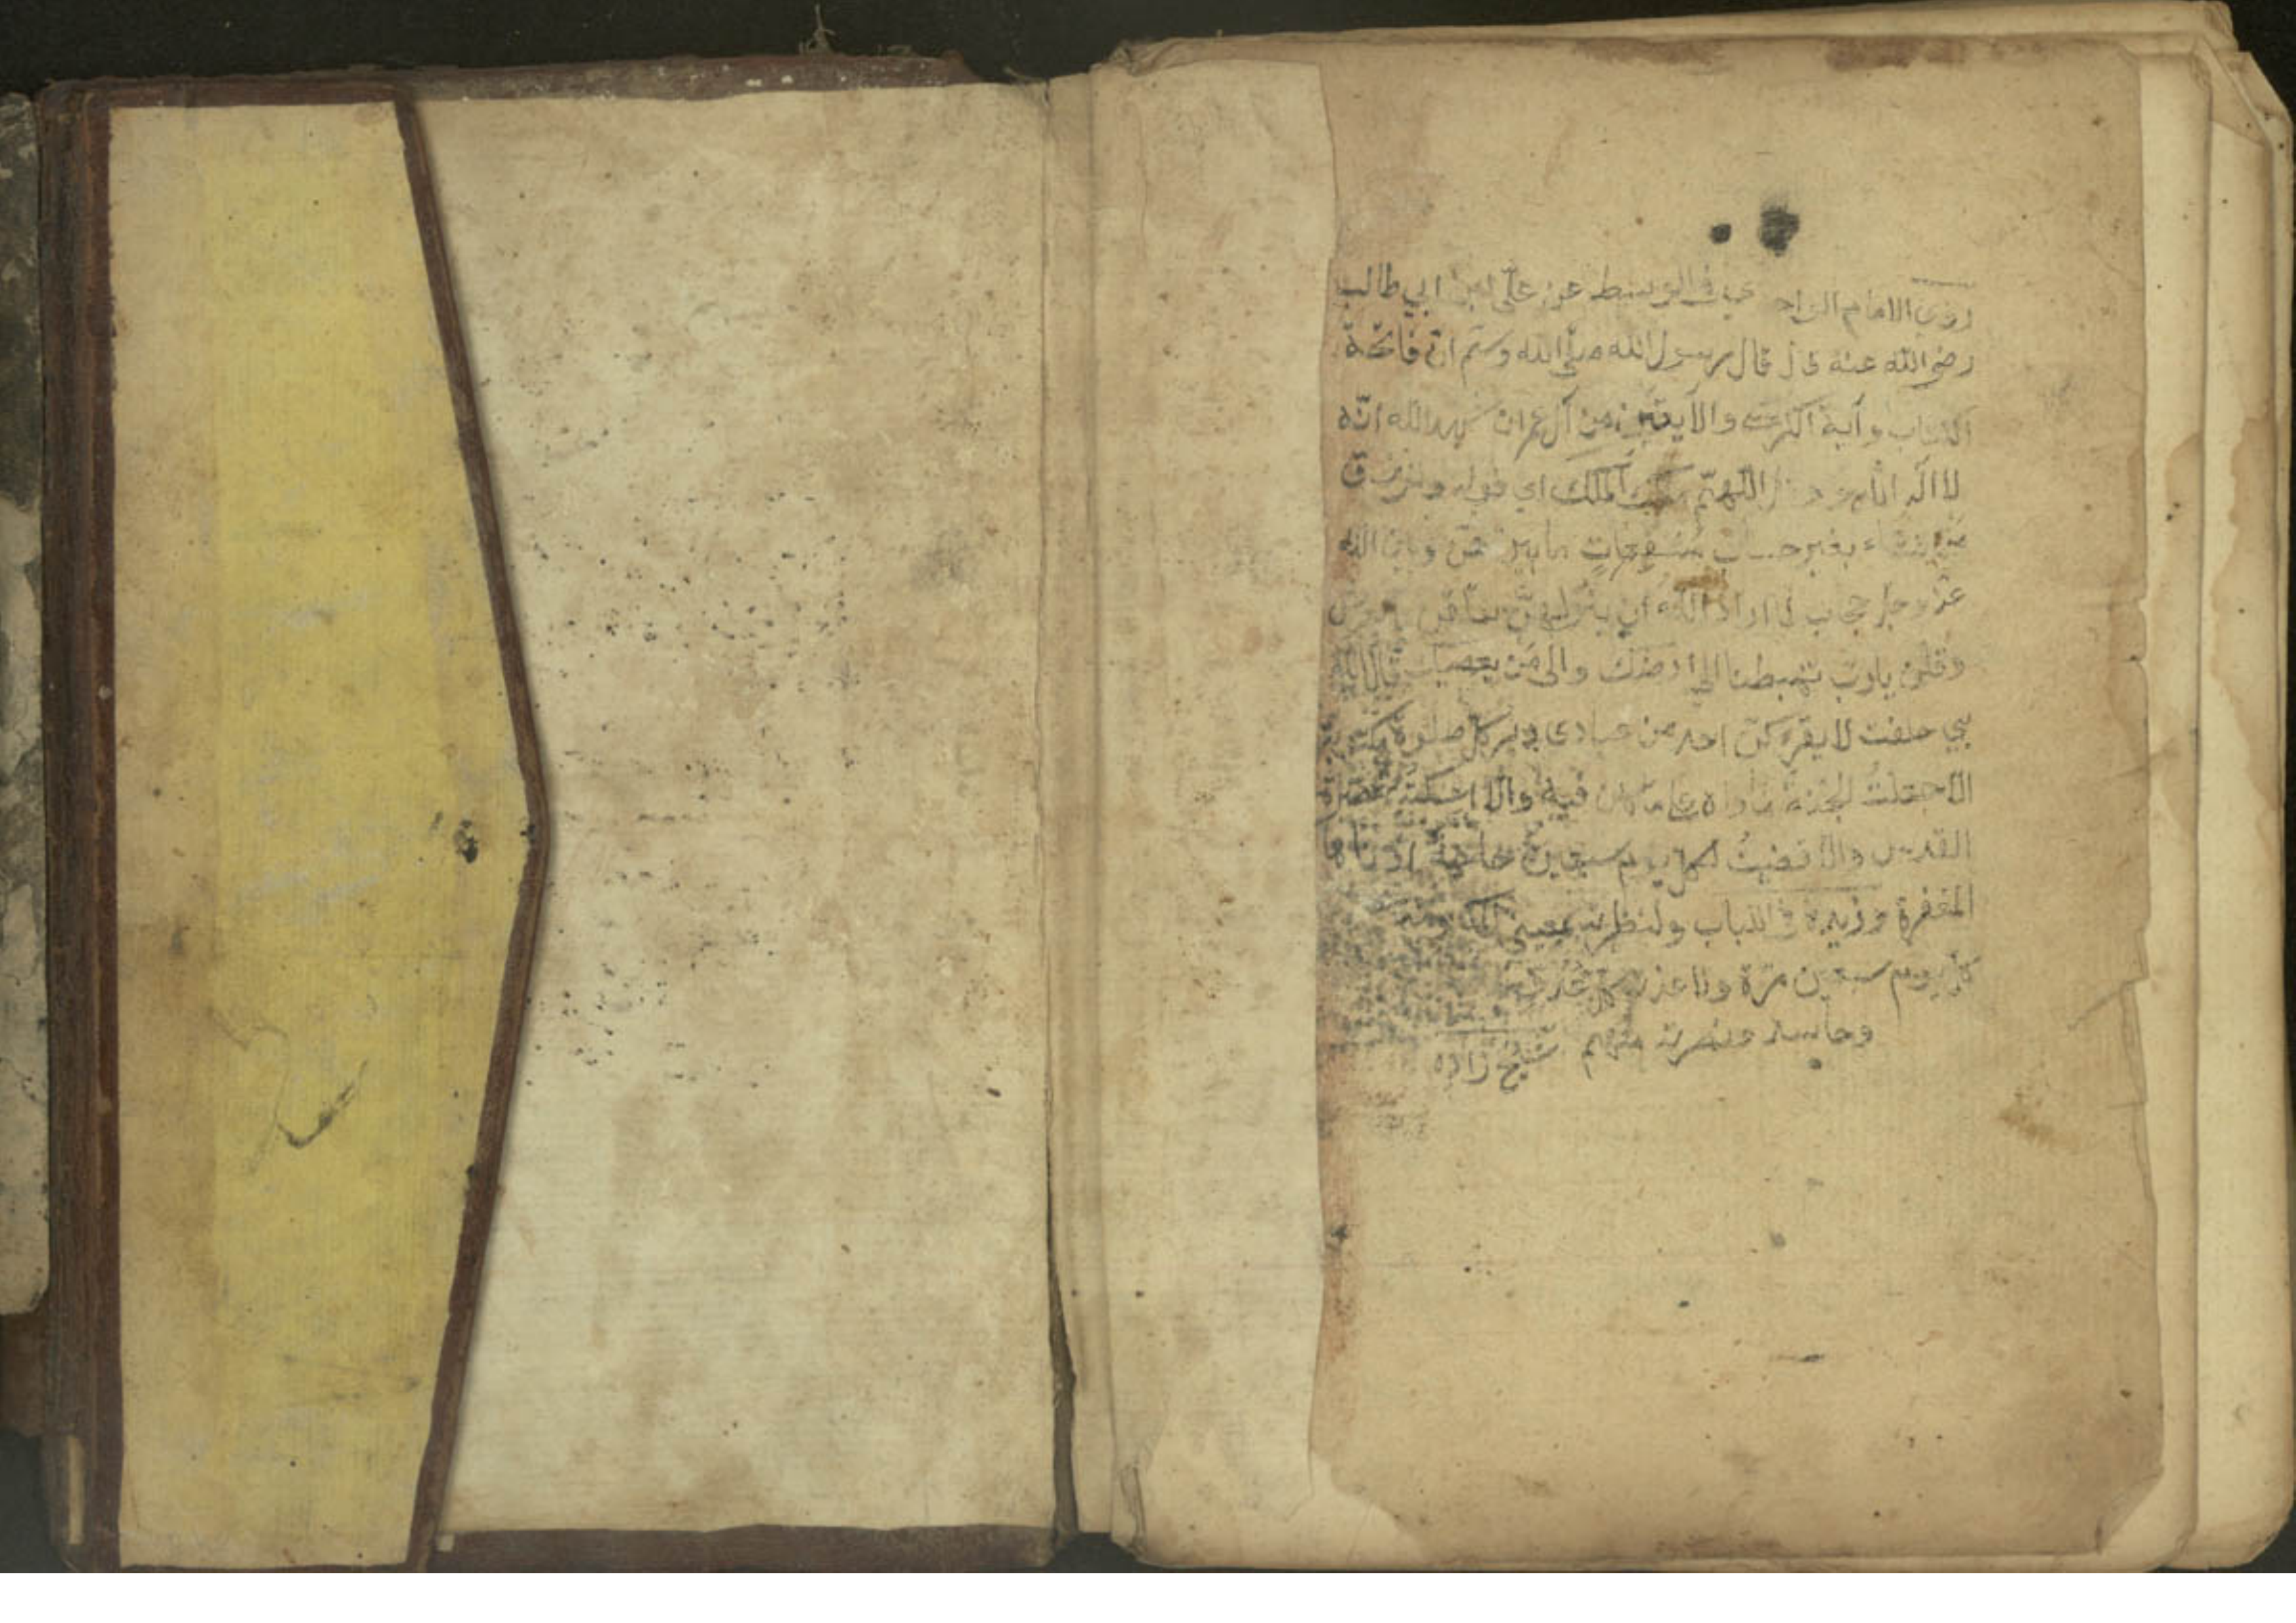 روى الامام الواحدي في الوسيط عن علي بن ابي طالب
رضي الله عنه قال قال رسول الله صلى الله وسلم ان فاتحة
الكتاب وآية الكرسي والآيتين من آل عمران شهد الله انه
لا اله الا هو و قل اللهم مالك الملك اي قوله وترزق
من تشاء بغير حساب مشفعات ما بينهن وبين الله
عز وجل حجاب لما اراد الله ان ينزلهن تعلقن بالعرش
وقلن يا رب تهبطنا الى ارضك والى من يعصيك قال الله
بي حلفت لا يقرءكن احد من عبادي دبر كل صلوة
الا جعلت الجنة مأواه على ما كان فيه والا اسكنته حضيرة
القدس والا قضيت له كل يوم سبعين حاجة ادناها
المغفرة وزيد في الباب ولنظرت بعيني
كل يوم سبعين مرة ولا عذته من كل عدو
وحاسد ونصرته منهم شيخ زاده